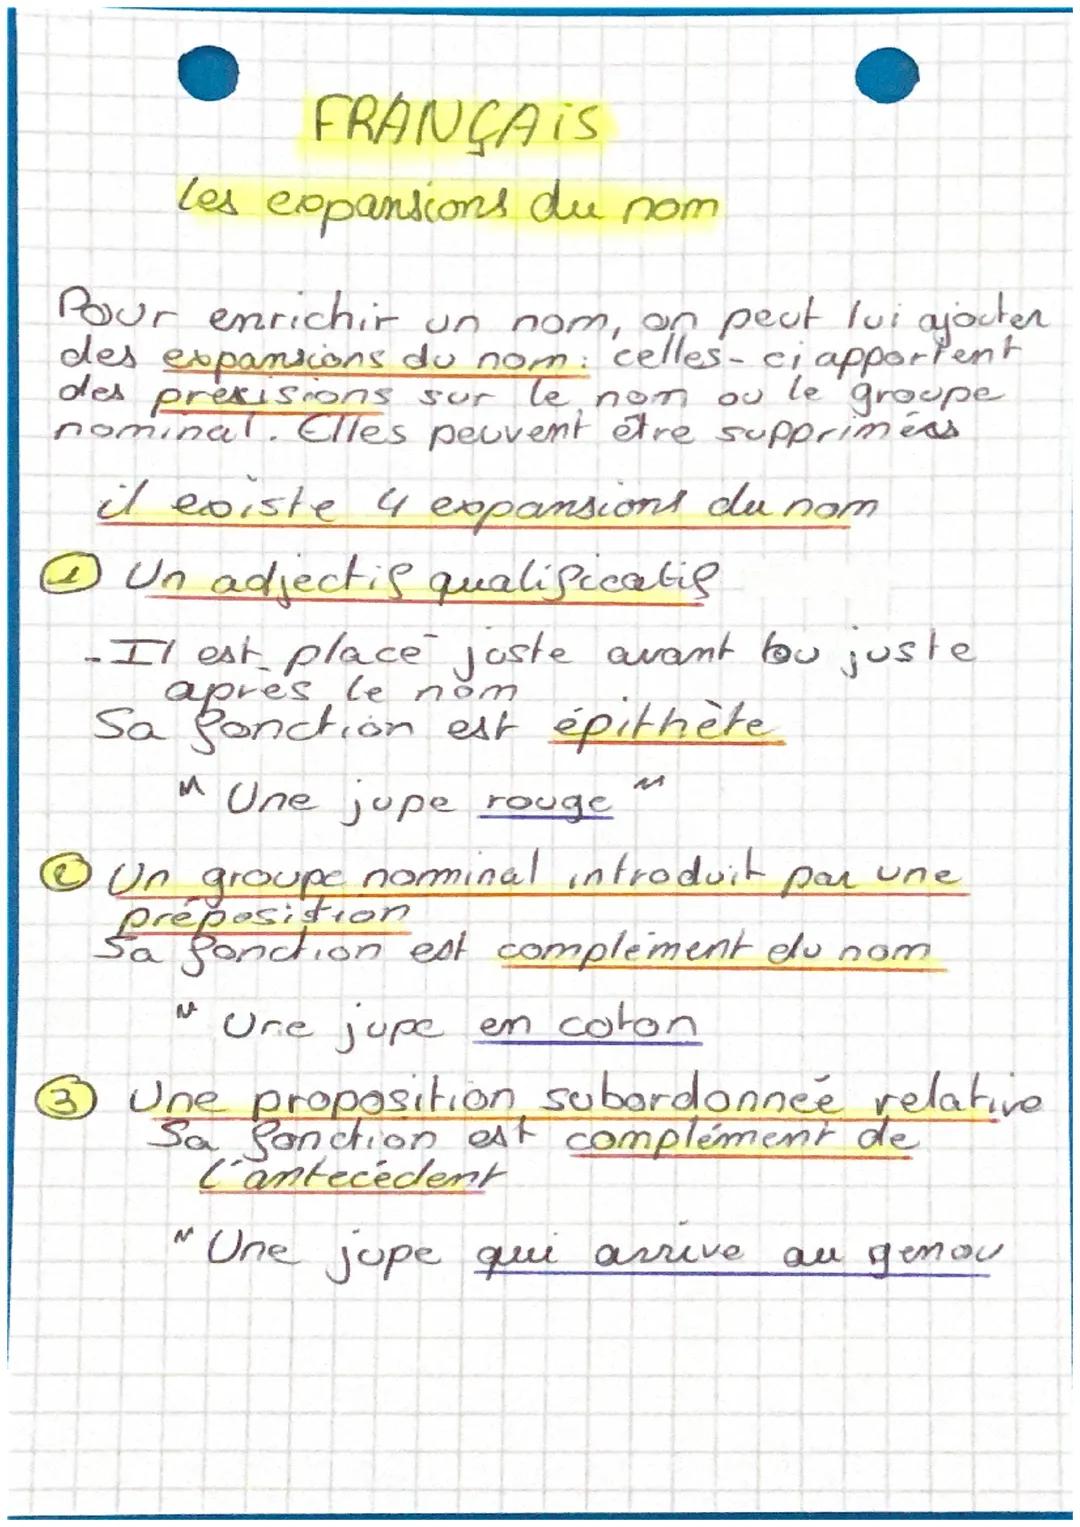 FRANÇAiS
les expansions du nom
Pour enrichir un nom, on peut lui ajouter
des expansions du nom : celles-ci apportent
des précisions sur le nom ou le groupe
nominal. Elles peuvent être supprimées
il existe 4 expansions du nom
1 Un adjectif qualificatif
- Il est placé juste avant ou juste
après le nom
Sa fonction est épithète
" Une jupe rouge "
2 Un groupe nominal introduit par une
préposition
Sa fonction est complément du nom
" Une jupe en coton
3 Une proposition subordonnée relative
Sa fonction est complément de
l'antécédent
" Une jupe qui arrive au genou